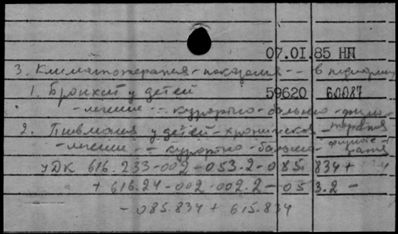 07.01.85 НП
3. Климатотерапия - показания -- в педиатрии
1. Бронхит у детей 59620 60087
-лечение -- курортно-бальнео-физио-
терапия
2. Пневмония у детей - хроническая -
-лечение -- курортно-бальнео- физиоте-
рапия
УДК 616.233-002-053.2-085.834+
+ 616.24-002-002.2-053.2-
- 085.834 + 615.834